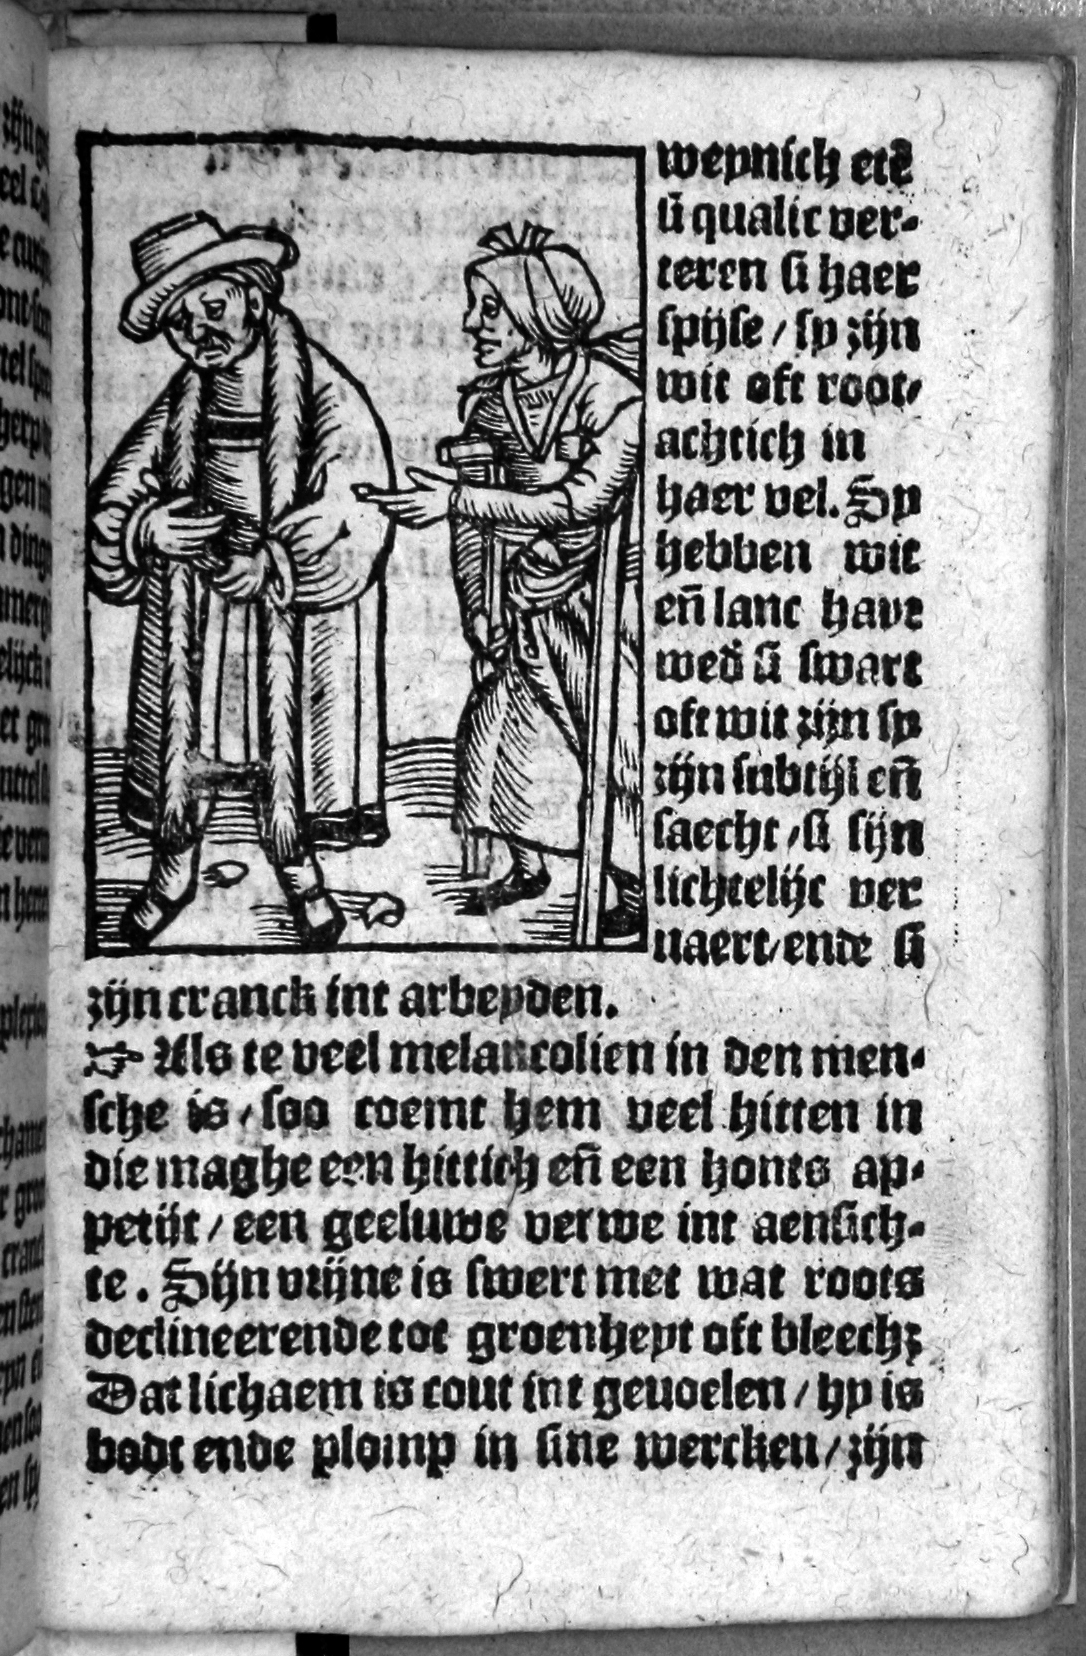 weynich etē
ſi qualic ver-
teren ſi haer
ſpijſe / ſy zijn
wit oft root/
achtich in
haer vel. Sy
hebben wit
eñ lanc hayr
wed' ſi ſwart
oft wit zijn ſy
zijn ſubtijl eñ
ſaecht / ſi ſijn
lichtelijc ver
uaert/ ende ſi
zijn cranck int arbeyden.
☞ Als te veel melancolien in den men-
ſche is / ſoo coemt hem veel hitten in
die maghe een hittich eñ een honts ap-
petijt / een geeluwe verwe int aenſich-
te. Sijn vrijne is ſwert met wat roots
declineerende tot groenheyt oft bleechz
Dat lichaem is cout int geuoelen / hy is
bodt ende plomp in ſine wercken / zijn